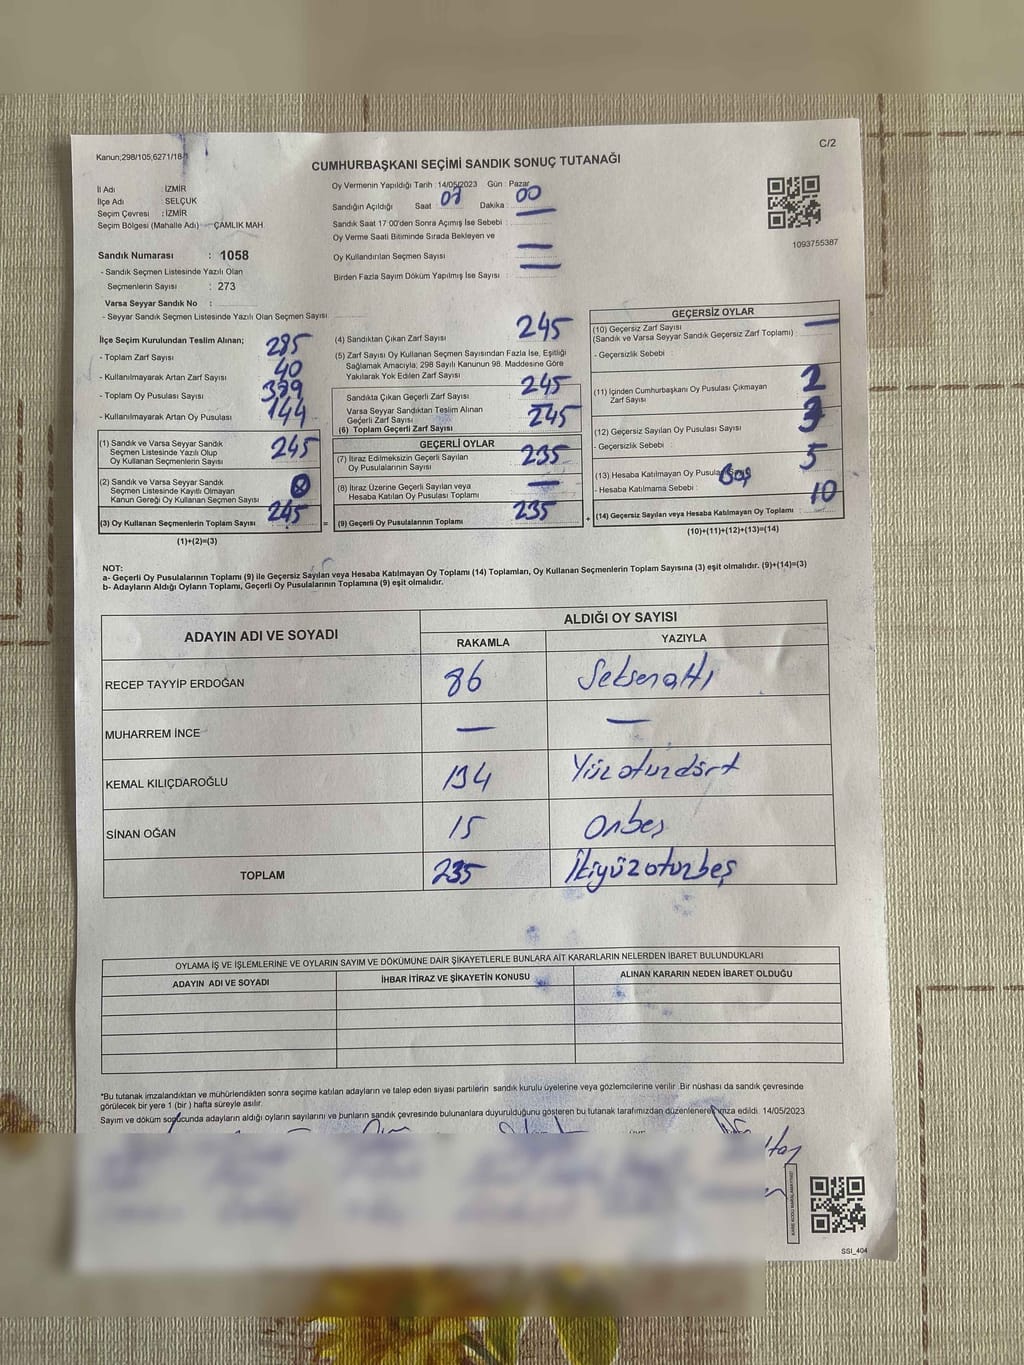 Kanun;298/105,6271/18/1
C/2
CUMHURBAŞKANI SEÇİMİ SANDIK SONUÇ TUTANAĞI
İl Adı : İZMİR
İlçe Adı : SELÇUK
Seçim Çevresi : İZMİR
Seçim Bölgesi (Mahalle Adı) : ÇAMLIK MAH
Oy Vermenin Yapıldığı Tarih :14/05/2023 Gün : Pazar
Sandığın Açıldığı Saat 07 Dakika : 00
Sandık Saat 17:00'den Sonra Açımış İse Sebebi : —
Oy Verme Saati Bitiminde Sırada Bekleyen ve
Oy Kullandırılan Seçmen Sayısı —
Birden Fazla Sayım Döküm Yapılmış İse Sayısı : —
1093755387
Sandık Numarası : 1058
- Sandık Seçmen Listesinde Yazılı Olan
Seçmenlerin Sayısı : 273
Varsa Seyyar Sandık No :
- Seyyar Sandık Seçmen Listesinde Yazılı Olan Seçmen Sayısı
İlçe Seçim Kurulundan Teslim Alınan;
- Toplam Zarf Sayısı 285
- Kullanılmayarak Artan Zarf Sayısı 40
- Toplam Oy Pusulası Sayısı
- Kullanılmayarak Artan Oy Pusulası 144
(1) Sandık ve Varsa Seyyar Sandık
Seçmen Listesinde Yazılı Olup
Oy Kullanan Seçmenlerin Sayısı 245
(2) Sandık ve Varsa Seyyar Sandık
Seçmen Listesinde Kayıtlı Olmayan
Kanun Gereği Oy Kullanan Seçmen Sayısı
(3) Oy Kullanan Seçmenlerin Toplam Sayısı 245 =
(1)+(2)=(3)
(4) Sandıktan Çıkan Zarf Sayısı 245
(5) Zarf Sayısı Oy Kullanan Seçmen Sayısından Fazla İse, Eşitliği
Sağlamak Amacıyla; 298 Sayılı Kanunun 98. Maddesine Göre
Yakılarak Yok Edilen Zarf Sayısı
Sandıkta Çıkan Geçerli Zarf Sayısı 245
Varsa Seyyar Sandıktan Teslim Alınan
Geçerli Zarf Sayısı
(6) Toplam Geçerli Zarf Sayısı 245
GEÇERLİ OYLAR
(7) İtiraz Edilmeksizin Geçerli Sayılan
Oy Pusulalarının Sayısı 235
(8) İtiraz Üzerine Geçerli Sayılan veya
Hesaba Katılan Oy Pusulası Toplamı —
(9) Geçerli Oy Pusulalarının Toplamı 235 +
GEÇERSİZ OYLAR
(10) Geçersiz Zarf Sayısı —
(Sandık ve Varsa Seyyar Sandık Geçersiz Zarf Toplamı) :
- Geçersizlik Sebebi :
(11) İçinden Cumhurbaşkanı Oy Pusulası Çıkmayan
Zarf Sayısı 2
(12) Geçersiz Sayılan Oy Pusulası Sayısı 3
- Geçersizlik Sebebi :
(13) Hesaba Katılmayan Oy Pusulası Sayısı 5
- Hesaba Katılmama Sebebi : Boş
(14) Geçersiz Sayılan veya Hesaba Katılmayan Oy Toplamı : 10
(10)+(11)+(12)+(13)=(14)
NOT:
a- Geçerli Oy Pusulalarının Toplamı (9) ile Geçersiz Sayılan veya Hesaba Katılmayan Oy Toplamı (14) Toplamları, Oy Kullanan Seçmenlerin Toplam Sayısına (3) eşit olmalıdır. (9)+(14)=(3)
b- Adayların Aldığı Oyların Toplamı, Geçerli Oy Pusulalarının Toplamına (9) eşit olmalıdır.
ADAYIN ADI VE SOYADI ALDIĞI OY SAYISI
RAKAMLA YAZIYLA
RECEP TAYYİP ERDOĞAN 86 Seksenaltı
MUHARREM İNCE — —
KEMAL KILIÇDAROĞLU 134 Yüzotuzdört
SİNAN OĞAN 15 Onbeş
TOPLAM 235 İkiyüzotuzbeş
OYLAMA İŞ VE İŞLEMLERİNE VE OYLARIN SAYIM VE DÖKÜMÜNE DAİR ŞİKAYETLERLE BUNLARA AİT KARARLARIN NELERDEN İBARET BULUNDUKLARI
ADAYIN ADI VE SOYADI İHBAR İTİRAZ VE ŞİKAYETİN KONUSU ALINAN KARARIN NEDEN İBARET OLDUĞU
*Bu tutanak imzalandıktan ve mühürlendikten sonra seçime katılan adayların ve talep eden siyasi partilerin sandık kurulu üyelerine veya gözlemcilerine verilir .Bir nüshası da sandık çevresinde
görülecek bir yere 1 (bir ) hafta süreyle asılır.
Sayım ve döküm sonucunda adayların aldığı oyların sayılarını ve bunların sandık çevresinde bulunanlara duyurulduğunu gösteren bu tutanak tarafımızdan düzenlenerek imza edildi. 14/05/2023
SSI_404